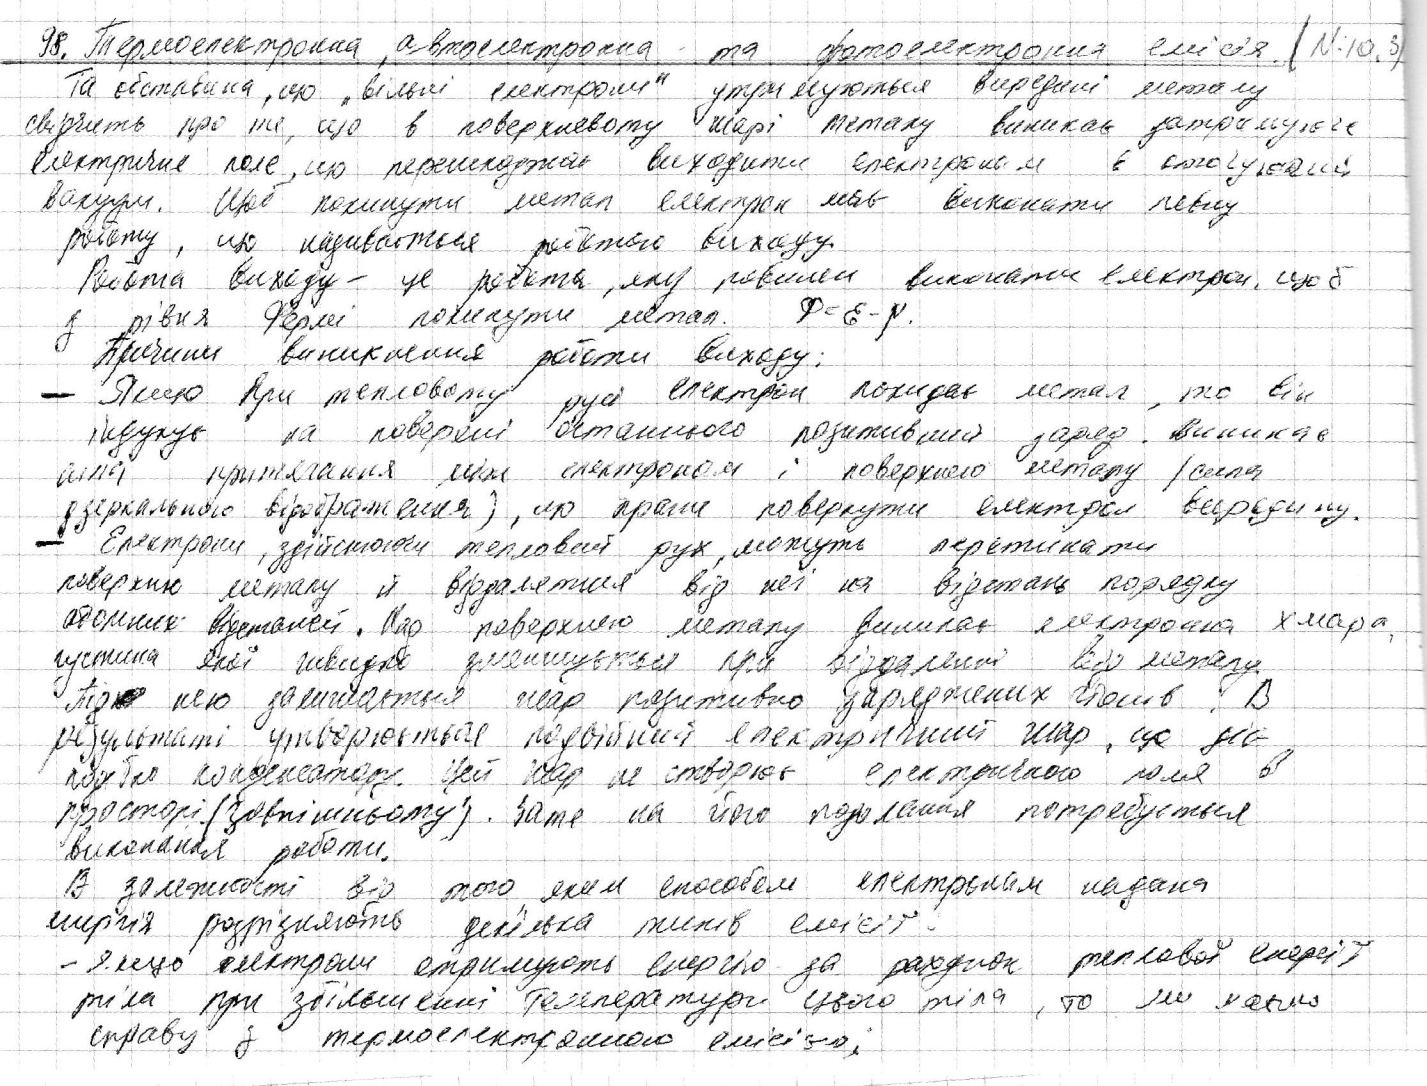 98. Термоелектронна, автоелектронна та фотоелектронна емісія. (N:10.3)
Та обставина, що „вільні електрони" утримуються всередині металу
свідчить про те, що в поверхневому шарі металу виникає затримуюче
електричне поле, що перешкоджає виходити електронам в оточуючий
вакуум. Щоб покинути метал електрон має виконати певну
роботу, що називається роботою виходу.
Робота виходу – це робота, яку повинен виконати електрон, щоб
з рівня Фермі покинути метал. Ф=ε-μ.
Причини виникнення роботи виходу:
– Якщо при тепловому русі електрон покидає метал, то він
індукує на поверхні останнього позитивний заряд. Виникає
сила притягання між електроном і поверхнею металу (сила
дзеркального відображення), що прагне повернути електрон всередину.
– Електрони, здійснюючи тепловий рух, можуть перетинати
поверхню металу й віддалятися від неї на відстань порядку
атомних відстаней. Над поверхнею металу виникає електронна хмара,
густина якої швидко зменшується при віддаленні від металу.
Під нею залишається шар позитивно заряджених іонів. В
результаті утворюється подвійний електричний шар, що діє
подібно конденсатору. Цей шар не створює електричного поля в
просторі (зовнішньому). Зате на його подолання потребується
виконання роботи.
В залежності від того, яким способом електронам надана
енергія розрізняють декілька типів емісії:
– якщо електрони отримують енергію за рахунок теплової енергії
тіла при збільшенні температури цього тіла, то ми маємо
справу з термоелектронною емісією;